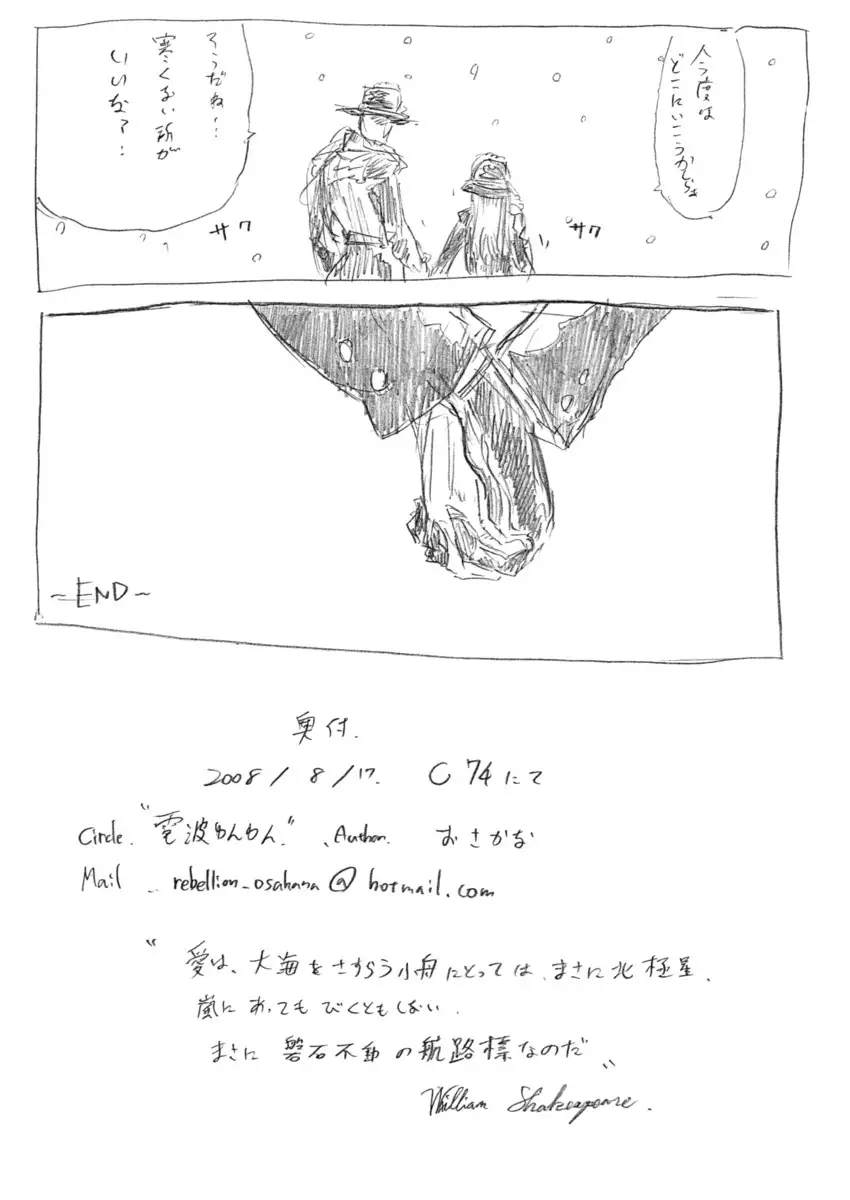 今度は
どこにいこうかしらね
そうだね…
寒くない所が
いいなァ…
サク
サク
~END~
奥付.
2008/8/17. C74にて
Circle. "電波わんわん" . Author. おさかな
Mail .. rebellion_osakana@hotmail.com
"愛は、大海をさすらう小舟にとっては、まさに北極星.
嵐にあってもびくともしない.
まさに磐石不動の航路標なのだ"
William Shakespeare.